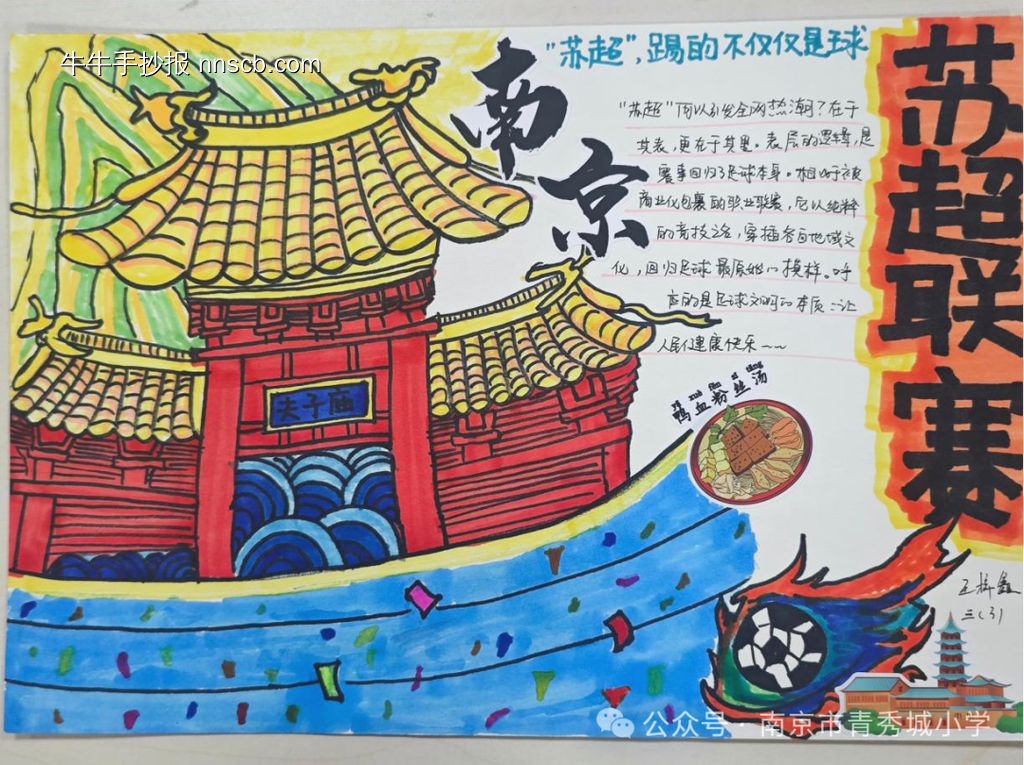 牛牛手抄报 nnscb.com
南京
"苏超",踢的不仅仅是球
苏超联赛
"苏超"何以引发全网热潮?在于
其表,更在于其里。表层的逻辑,是
赛事回归了足球本身。相对于被
商业化包裹的职业联赛,它以纯粹
的竞技交锋,穿插各自地域文
化,回归足球最原始的模样。呼
应的是足球文明的本质:让
人民健康快乐~~
yā xuè fěn sī tāng
鸭血粉丝汤
夫子庙
三(3)
公众号·南京市青秀城小学